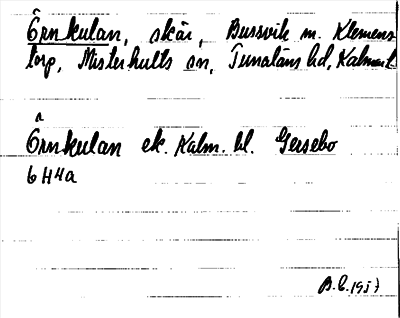 Örnkulan, skär, Bussvik m. Klemens
torp, Misterhults sn, Tunaläns hd, Kalmar l.
Örnkulan ek. Kalm. bl. Gersebo
6H4a
B.E. 1957